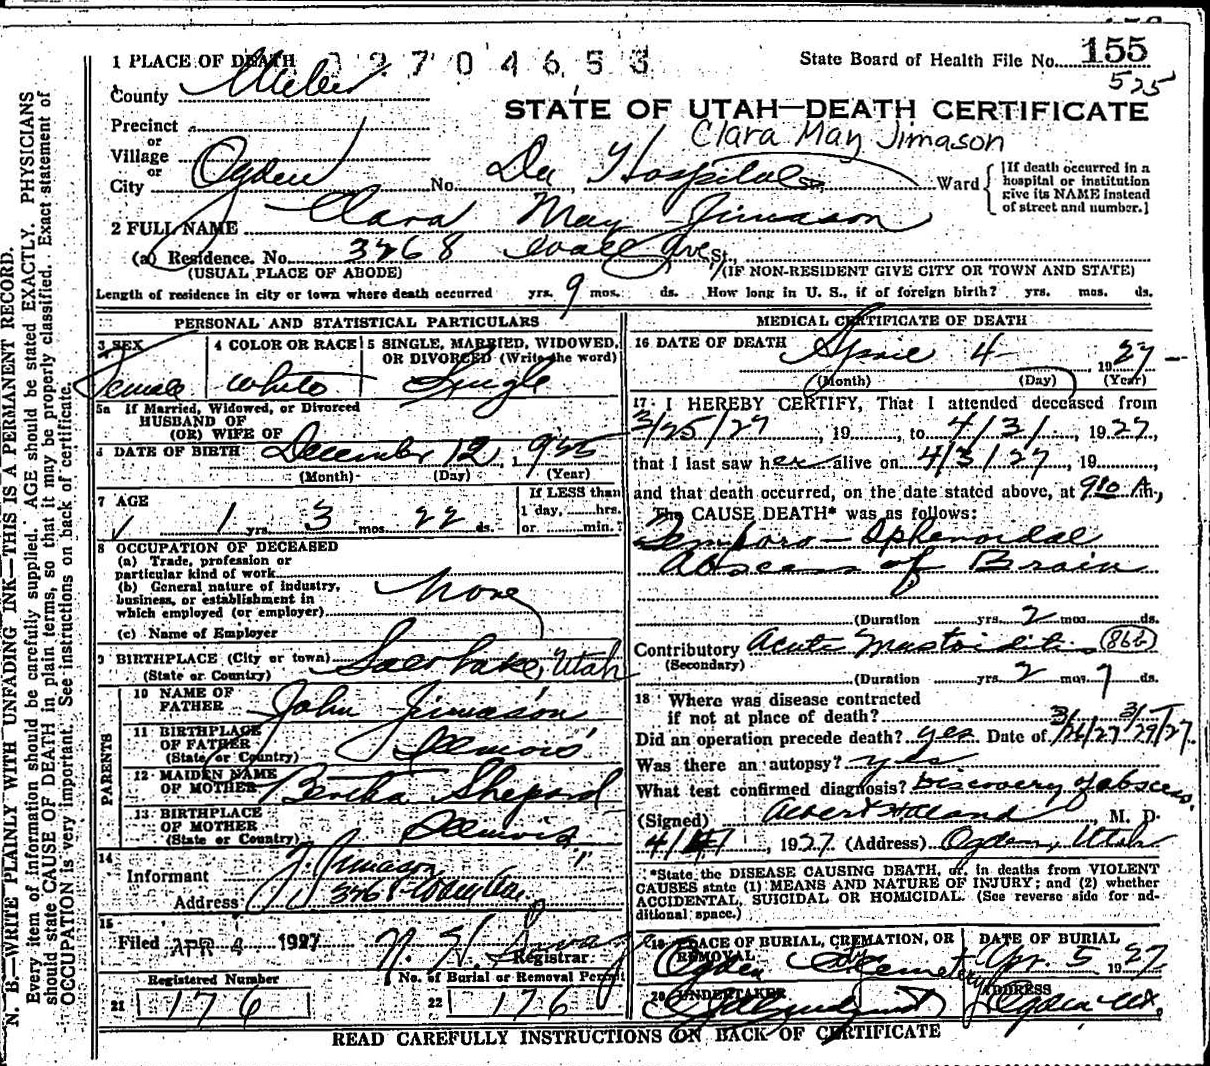 1 PLACE OF DEATH
2704653
State Board of Health File No. 155
525
County Weber
STATE OF UTAH—DEATH CERTIFICATE
Clara May Jimason
Precinct
or
Village
or
City Ogden No. Dee Hospital St. Ward
[If death occurred in a
hospital or institution
give its NAME instead
of street and number.]
2 FULL NAME Clara May Jimason
(a) Residence. No. 3768 Ave St.,
(USUAL PLACE OF ABODE) (IF NON-RESIDENT GIVE CITY OR TOWN AND STATE)
Length of residence in city or town where death occurred yrs. 9 mos. ds. How long in U. S., if of foreign birth? yrs. mos. ds.
PERSONAL AND STATISTICAL PARTICULARS
3 SEX Female
4 COLOR OR RACE White
5 SINGLE, MARRIED, WIDOWED,
OR DIVORCED (Write the word)
Single
5a If Married, Widowed, or Divorced
HUSBAND OF
(OR) WIFE OF
DATE OF BIRTH December 12, 1925
(Month) (Day) (Year)
7 AGE
1 yrs. 3 mos. 22 ds.
If LESS than
1 day, hrs.
or min.?
8 OCCUPATION OF DECEASED
(a) Trade, profession or
particular kind of work
(b) General nature of industry,
business, or establishment in
which employed (or employer)
None
(c) Name of Employer
9 BIRTHPLACE (City or town) Salt Lake, Utah
(State or Country)
PARENTS
10 NAME OF
FATHER John Jimason
11 BIRTHPLACE
OF FATHER Illinois
(State or Country)
12 MAIDEN NAME
OF MOTHER Bertha Shepard
13 BIRTHPLACE
OF MOTHER Illinois
(State or Country)
14
Informant J. Jimason
Address 3768
15
Filed APR 4 1927 Registrar.
Registered Number
21 176
No. of Burial or Removal Permit
22 176
MEDICAL CERTIFICATE OF DEATH
16 DATE OF DEATH April 4 1927
(Month) (Day) (Year)
17 I HEREBY CERTIFY, That I attended deceased from
3/25/27, 19, to 4/3/, 1927,
that I last saw her alive on 4/3/27, 19
and that death occurred, on the date stated above, at 910 A m,
The CAUSE DEATH* was as follows:
Temporo-Sphenoidal
Abscess of Brain
(Duration yrs. 2 mos. ds.
Contributory Acute Mastoiditis
(Secondary)
(Duration yrs. 2 mos 7 ds.
18 Where was disease contracted
if not at place of death?
Did an operation precede death? yes Date of 3/26/27 3/29/27
Was there an autopsy? yes
What test confirmed diagnosis? Discovery of abscess.
(Signed) M. D.
1927 (Address) Ogden, Utah
*State the DISEASE CAUSING DEATH, or, in deaths from VIOLENT
CAUSES state (1) MEANS AND NATURE OF INJURY; and (2) whether
ACCIDENTAL, SUICIDAL OR HOMICIDAL. (See reverse side for ad-
ditional space.)
19 PLACE OF BURIAL, CREMATION, OR
REMOVAL
Ogden City Cemetery
DATE OF BURIAL
Apr. 5 1927
20 UNDERTAKER
ADDRESS
Ogden Ut.
READ CAREFULLY INSTRUCTIONS ON BACK OF CERTIFICATE
N. B.—WRITE PLAINLY WITH UNFADING INK—THIS IS A PERMANENT RECORD.
Every item of information should be carefully supplied. AGE should be stated EXACTLY. PHYSICIANS
should state CAUSE OF DEATH in plain terms, so that it may be properly classified. Exact statement of
OCCUPATION is very important. See instructions on back of certificate.